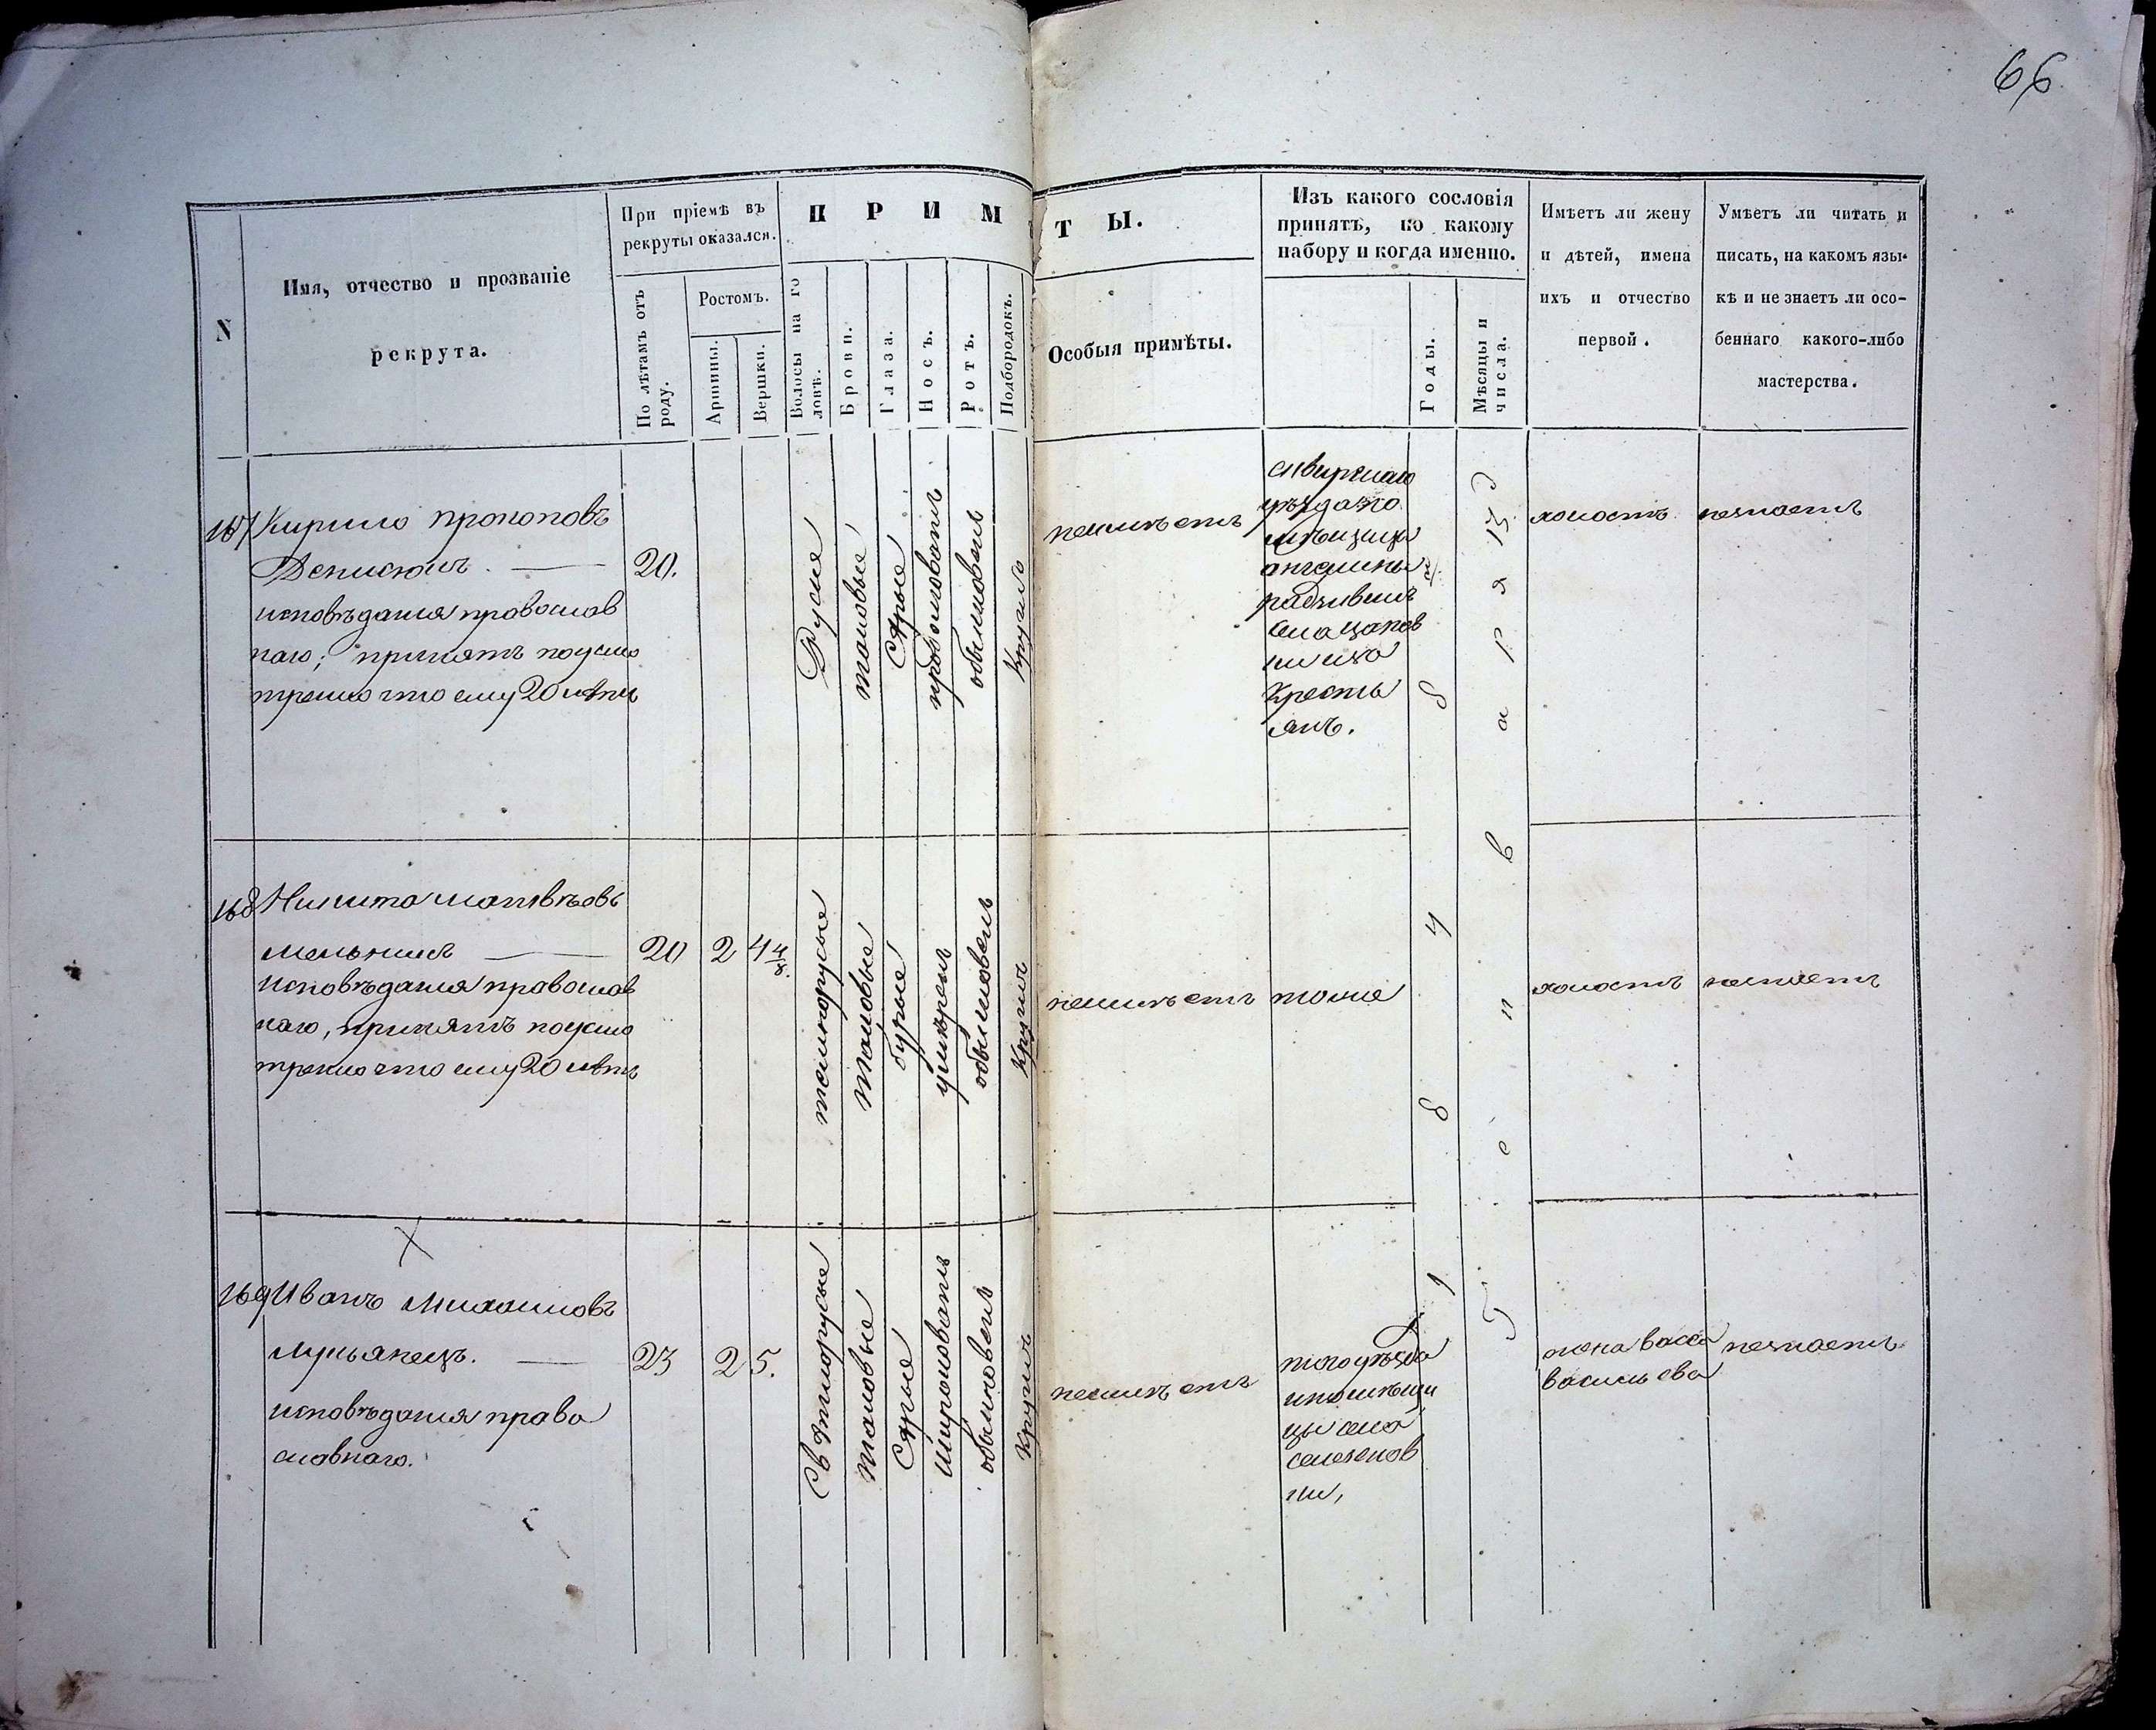 66
N
Имя, отчество и прозваніе
рекрута.
При пріемѣ въ
рекруты оказался.
По лѣтамъ отъ
роду.
Ростомъ.
Аршины.
Вершки.
П Р И М
Т Ы.
Волосы на го
ловѣ.
Брови.
Глаза.
Носъ.
Ротъ.
Подбородокъ.
Особыя примѣты.
Изъ какого сословія
принятъ, по какому
набору и когда именно.
Годы.
Мѣсяцы и
числа.
Имѣетъ ли жену
и дѣтей, имена
ихъ и отчество
первой.
Умѣетъ ли читать и
писать, на какомъ язы-
кѣ и не знаетъ ли осо-
беннаго какого-либо
мастерства.
167 Кирило Прокоповъ
Денисюкъ. — 20.
исповѣданія православ
наго; принятъ поусмо
тренію что ему 20 лѣтъ
Русые
таковые
Сѣрые
продолговатъ
обыкновенъ
Кругло
неимѣетъ
уѣзда
помѣщицы
села
Кресть
янъ.
холостъ
незнаетъ
168 Никита Матвѣевъ
— 20 2 4 4/8.
исповѣданія православ
наго, принятъ поусмо
тренію что ему 20 лѣтъ
темнорусые
таковые
бурые
умѣренъ
обыкновенъ
Круглъ
неимѣетъ
тоже
холостъ
незнаетъ
169 Иванъ Михаиловъ
Лукьянецъ. — 23 2 5.
исповѣданія право
славнаго.
Свѣтлорусые
таковые
Сѣрые
широковатъ
обыкновенъ
Круглъ
неимѣетъ
того уѣзда
ипомѣщи
цы села
жена Васса
Васильева
незнаетъ
1 8 4 8
Генваря 15